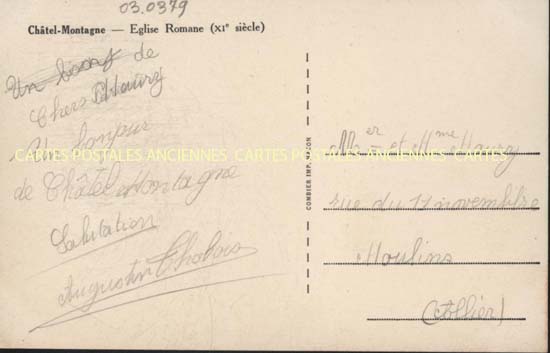 03.0379
Châtel-Montagne — Eglise Romane (XIe siècle)
Un de
Chers Maury
Un bonjour
de Châtel Montagne
Salutation
Augustin
CARTES POSTALES ANCIENNES CARTES POSTALES ANCIENNES CARTES POSTALES ANCIENNES
COMBIER IMP. MACON
Mr et Mme Maury
rue du 11 novembre
Moulins
(Allier)